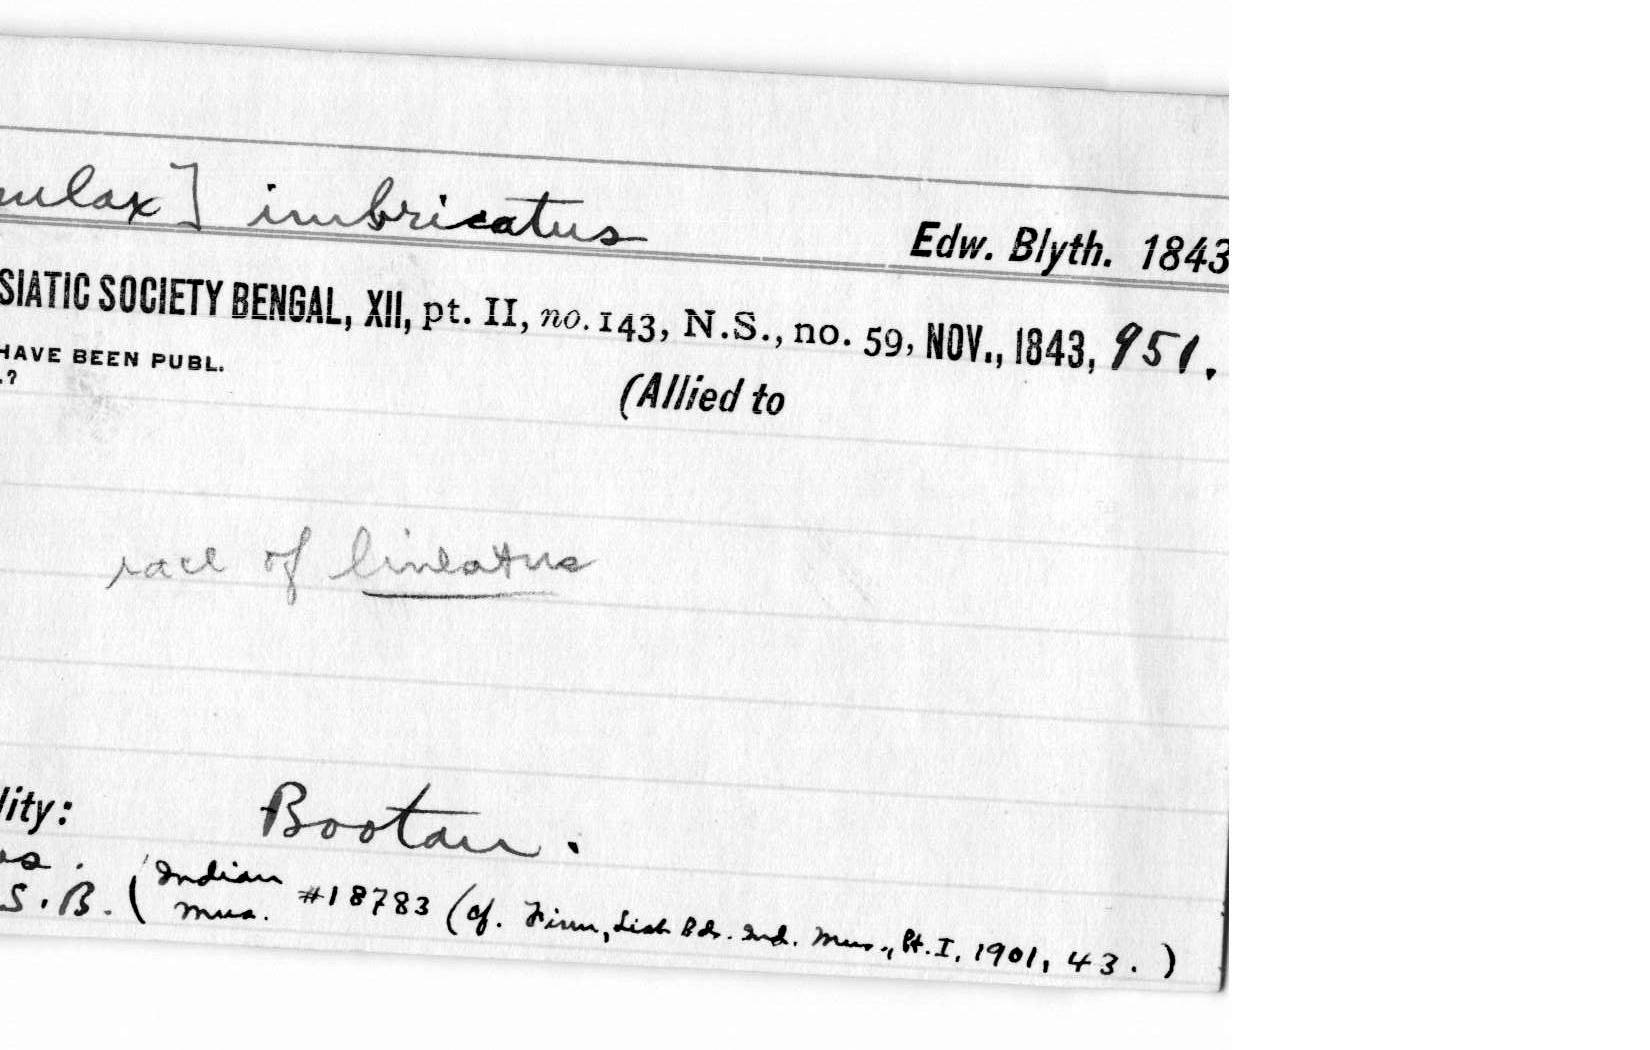 mulax] imbricatus
Edw. Blyth. 1843
SIATIC SOCIETY BENGAL, XII, pt. II, no. 143, N.S., no. 59, NOV., 1843, 951.
HAVE BEEN PUBL.
.?
(Allied to
race of lineatus
lity: Bootan.
S. B. (Indian Mus. #18783 (cf. Finn, List Bds. Ind. Mus., Pt. I, 1901, 43.)